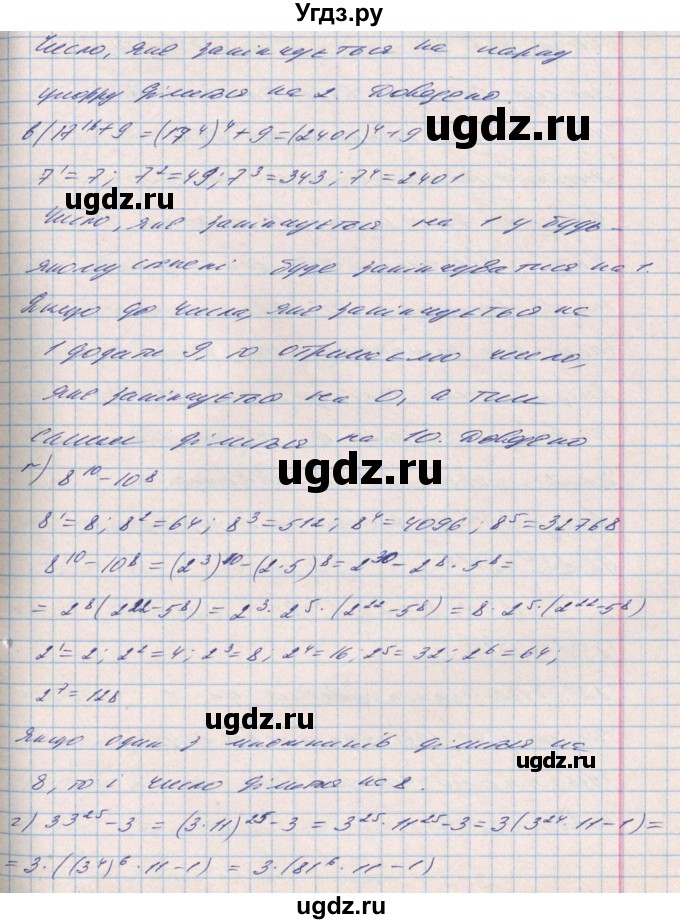 Угдз.ру
Число, яке закінчується на парну
цифру ділиться на 2. Доведено.
в) 17¹⁶+9 = (17⁴)⁴+9 = (2401)⁴+9
7¹=7; 7²=49; 7³=343; 7⁴=2401
Число, яке закінчується на 1 у будь-
якому степені буде закінчуватися на 1.
Якщо до числа, яке закінчується на
1 додати 9, то отримаємо число,
яке закінчується на 0, а тим
самим ділиться на 10. Доведено
г) 8¹⁰-10⁸
8¹=8; 8²=64; 8³=512; 8⁴=4096; 8⁵=32768
8¹⁰-10⁸ = (2³)¹⁰-(2·5)⁸ = 2³⁰-2⁸·5⁸=
= 2⁸(2²²-5⁸) = 2³·2⁵·(2²²-5⁸) = 8·2⁵·(2²²-5⁸)
2¹=2; 2²=4; 2³=8; 2⁴=16; 2⁵=32; 2⁶=64;
2⁷=128
Якщо один з множників ділиться на
8, то і число ділиться на 8.
г) 33²⁵-3 = (3·11)²⁵-3 = 3²⁵·11²⁵-3 = 3(3²⁴·11-1)=
= 3·((3⁴)⁶·11-1) = 3·(81⁶·11-1)
ugdz.ru
ugdz.ru
ugdz.ru
ugdz.ru
ugdz.ru
ugdz.ru
ugdz.ru
ugdz.ru